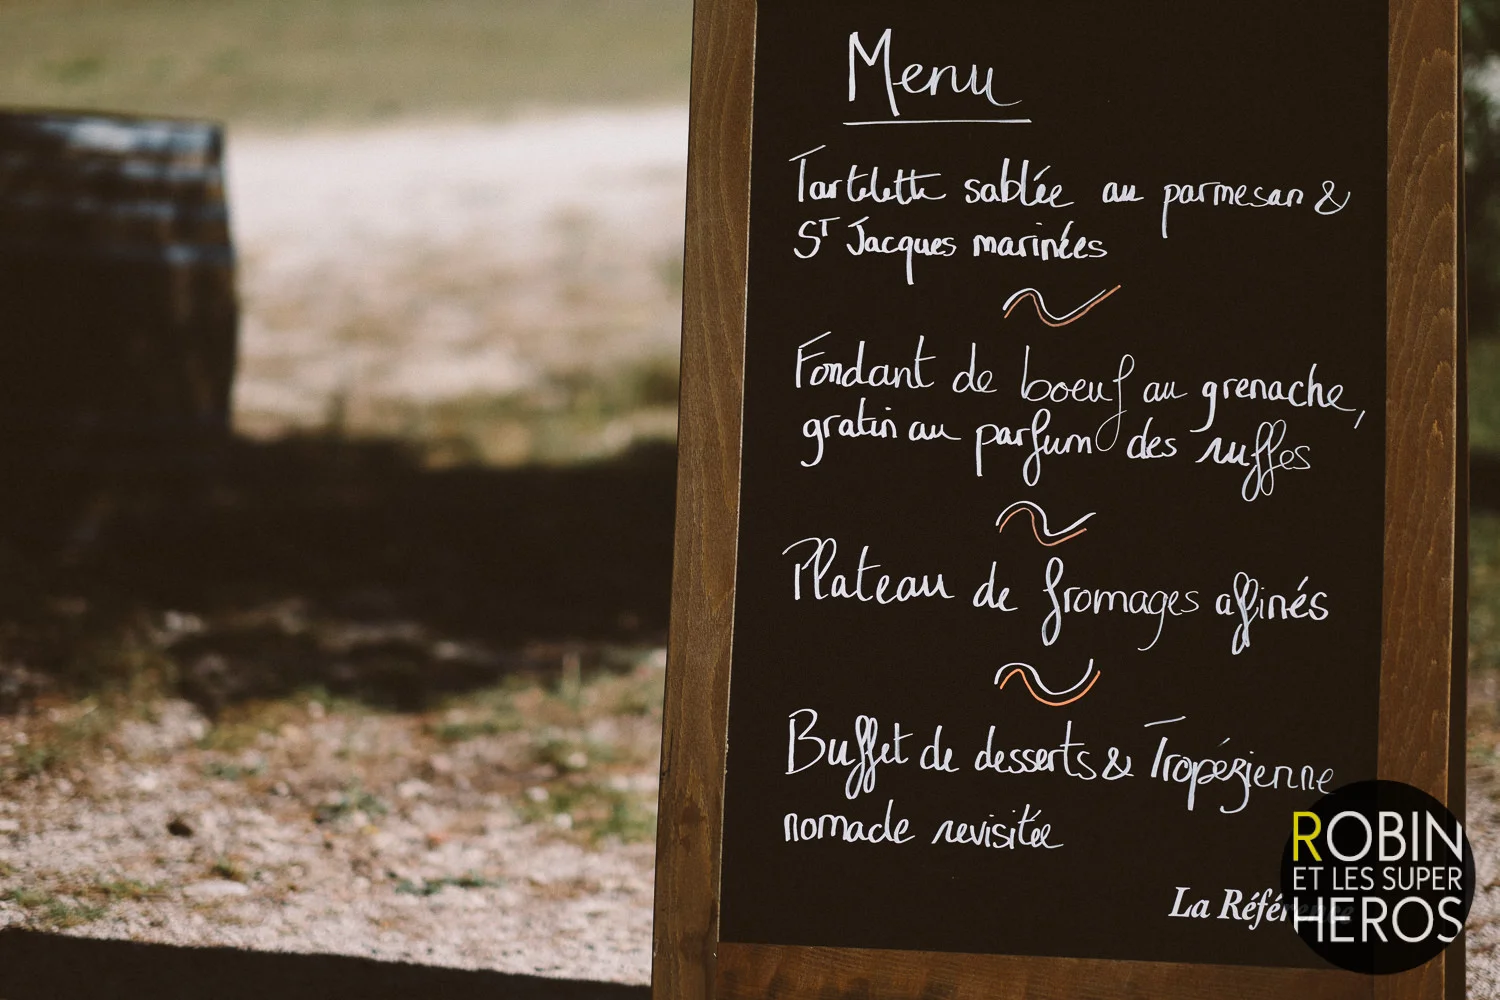 Menu
Tartelette sablée au parmesan &
ST Jacques marinées
Fondant de boeuf au grenache,
gratin au parfum des truffes
Plateau de fromages affinés
Buffet de desserts & Tropézienne
nomade revisitée
La
ROBIN
ET LES SUPER
HEROS